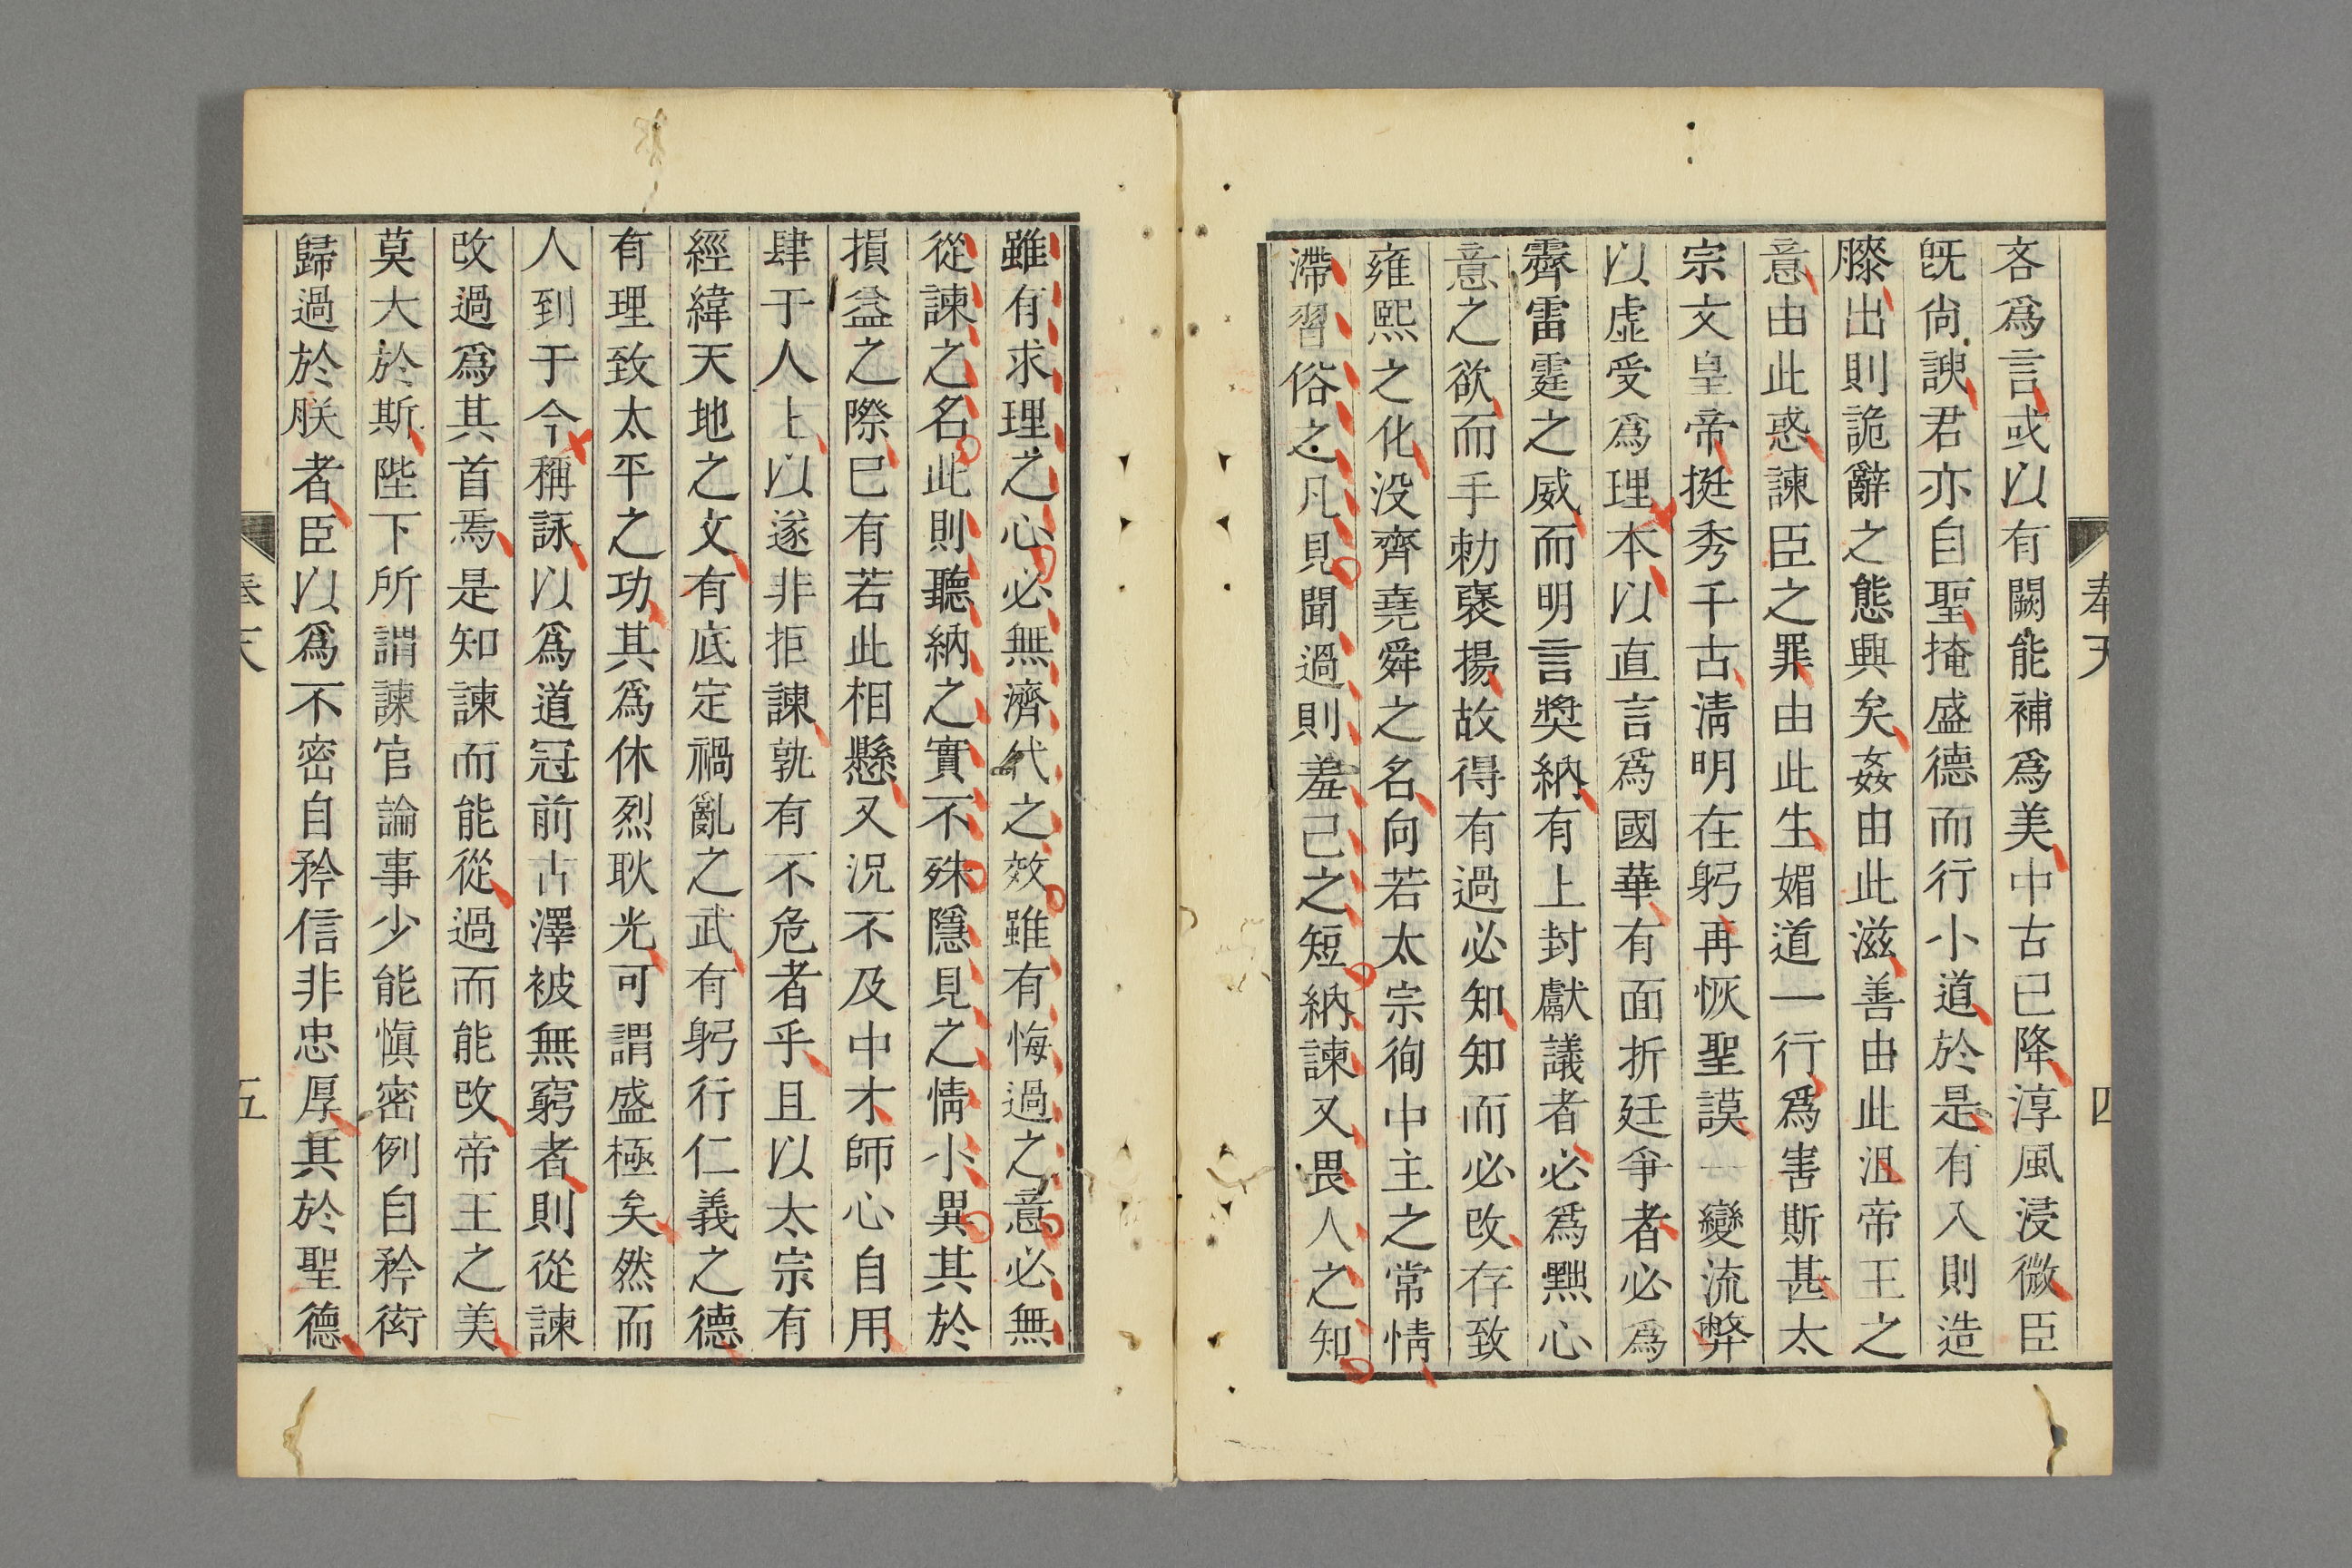 吝爲言或以有闕能補爲美中古已降淳風浸微臣
旣尙諛君亦自聖掩盛德而行小道於是有入則造
膝出則詭辭之態興矣姦由此滋善由此沮帝王之
意由此惑諫臣之罪由此生媚道一行爲害斯甚太
宗文皇帝挺秀千古淸明在躬再恢聖謨一變流弊
以虛受爲理本以直言爲國華有面折廷爭者必爲
霽雷霆之威而明言奬納有上封獻議者必爲黜心
意之欲而手勅襃揚故得有過必知知而必改存致
雍熙之化没齊堯舜之名向若太宗徇中主之常情
滯習俗之凡見聞過則羞己之短納諫又畏人之知
雖有求理之心必無濟代之效雖有悔過之意必無
從諫之名此則聽納之實不殊隱見之情小異其於
損益之際已有若此相懸又況不及中才師心自用
肆于人上以遂非拒諫孰有不危者乎且以太宗有
經緯天地之文有底定禍亂之武有躬行仁義之德
有理致太平之功其爲休烈耿光可謂盛極矣然而
人到于今稱詠以爲道冠前古澤被無窮者則從諫
改過爲其首焉是知諫而能從過而能改帝王之美
莫大於斯陛下所謂諫官論事少能愼密例自矜衒
歸過於朕者臣以爲不密自矜信非忠厚其於聖德
奉天
四
奉天
五